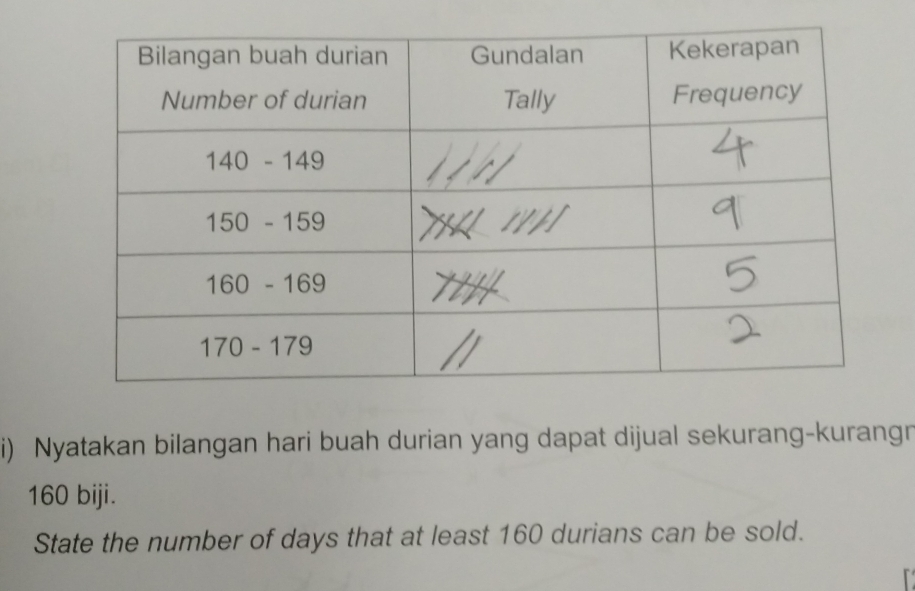 Bilangan buah durian Gundalan Kekerapan
Number of durian Tally Frequency
140 - 149 4
150 - 159 9
160 - 169 5
170 - 179 2
i) Nyatakan bilangan hari buah durian yang dapat dijual
160 biji.
State the number of days that at least 160 durians can be sold.